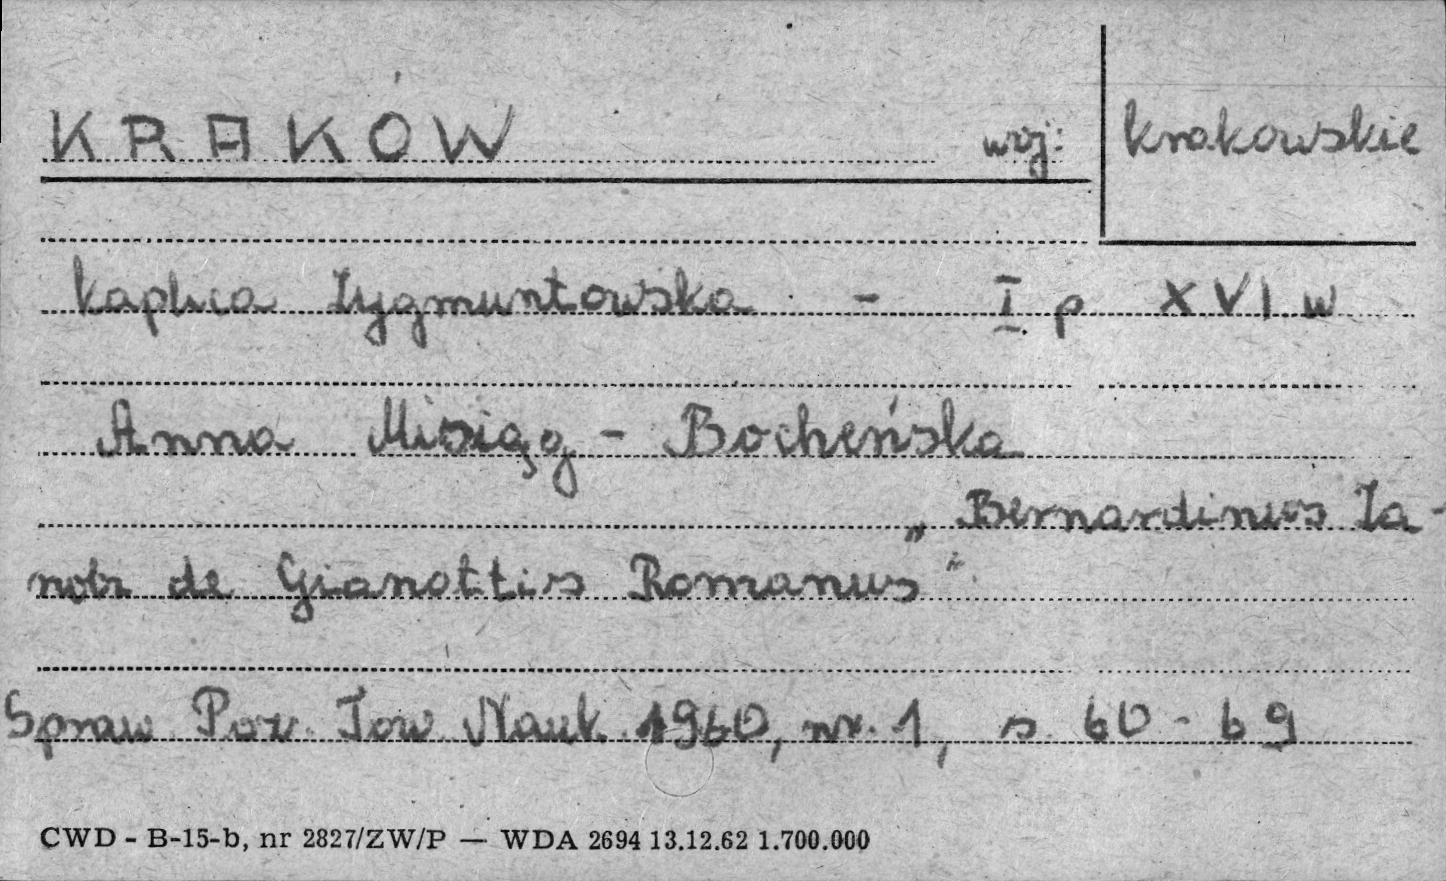 KRAKÓW woj: krakowskie
kaplica Zygmuntowska - I p XVI w
Anna Misiąg - Bocheńska
„Bernardinus Za-
nobi de Gianottis Romanus"
Spraw Poz. Tow Nauk. 1960, nr. 1, s 60-69
CWD - B-15-b, nr 2827/ZW/P — WDA 2694 13.12.62 1.700.000